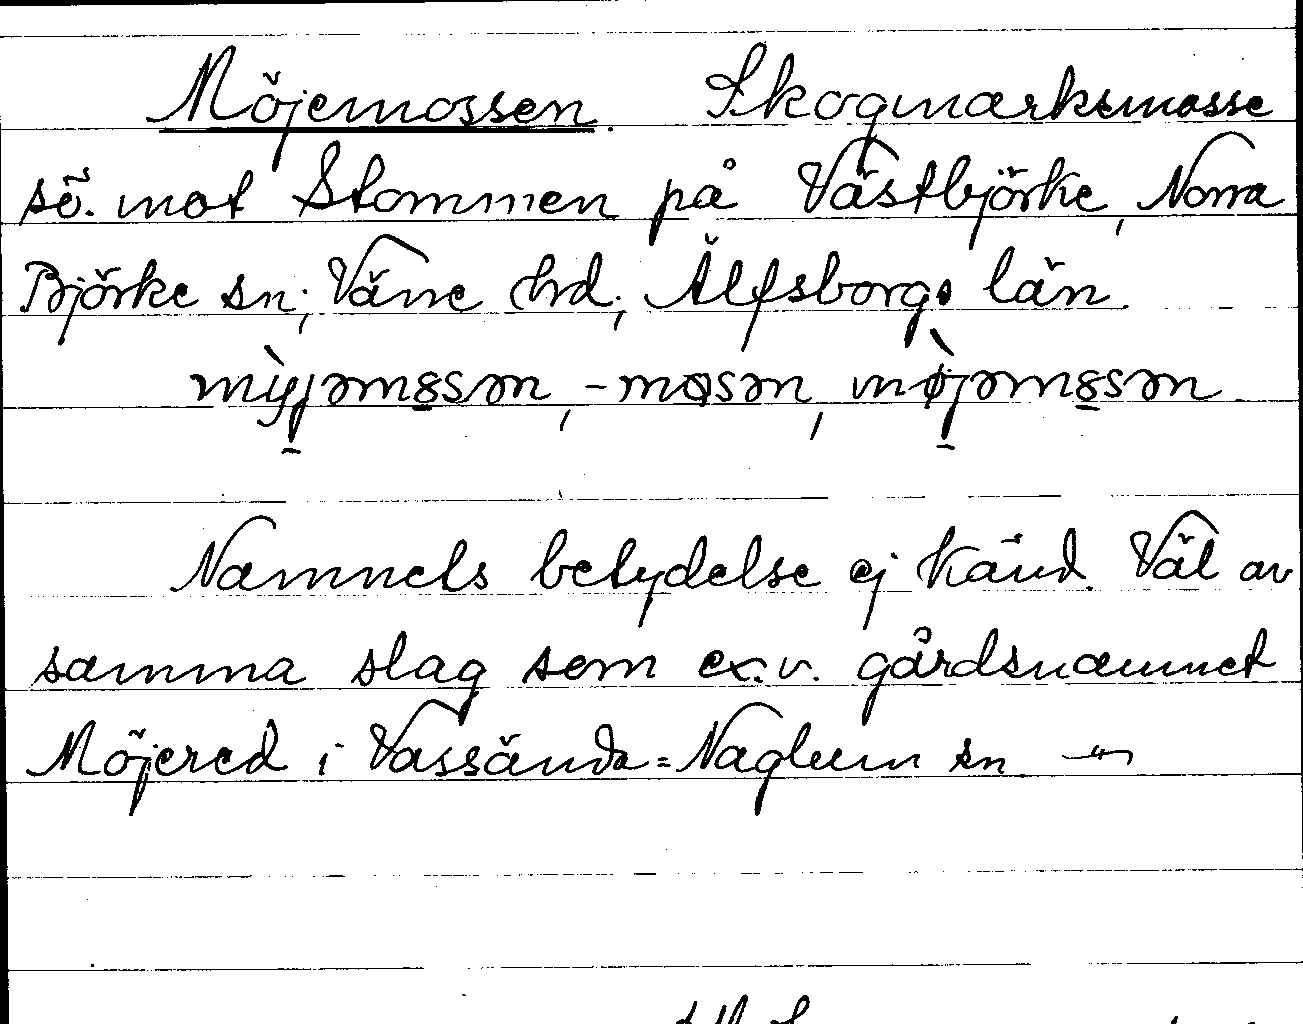 Möjemossen. Skogmarksmosse
sö. mot Stommen på Västbjörke, Norra
Björke sn; Väne hd; Älfsborgs län.
mỳjəmȣsən, -mɷsən, mø̀jəmȣsən
Namnets betydelse ej känd. Väl av
samma slag som ex.v. gårdsnamnet
Möjered i Vassända=Naglum sn